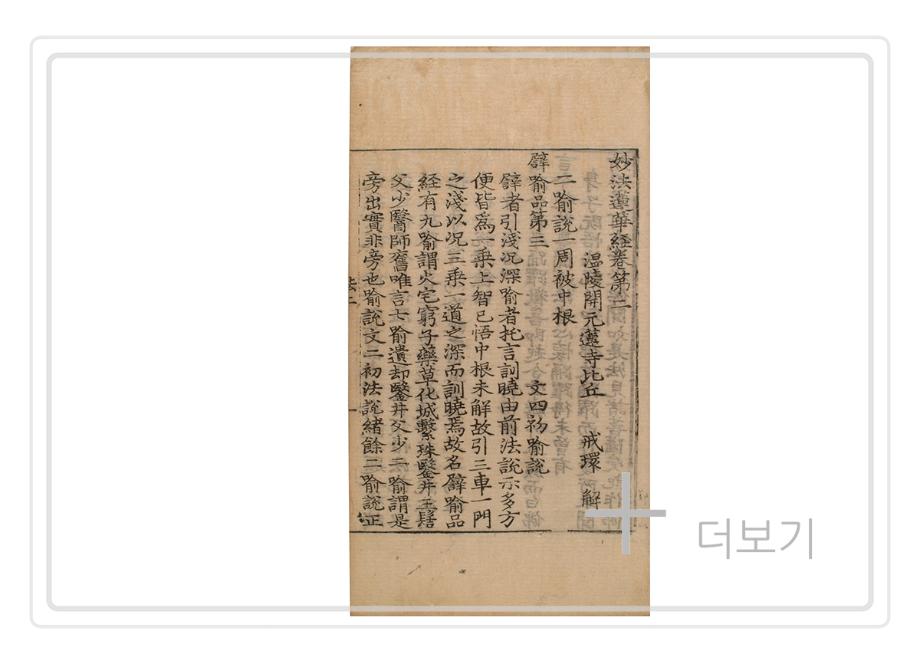 妙法蓮華経卷第二
温陵開元蓮寺比丘 戒環 解
二喻說一周被中根
譬喻品第三 文四初喻說
譬者引淺况深喻者托言訓曉由前法說示多方
便皆爲一乗上智已悟中根未解故引三車一門
之淺以况三乗一道之深而訓曉焉故名譬喻品
経有九喻謂火宅窮子藥草化城繫珠鑿井王髻
父少醫師舊唯言七喻遺却鑿井父少二喻謂是
旁出實非旁也喻說文二初法說緒餘二喻說正
더보기